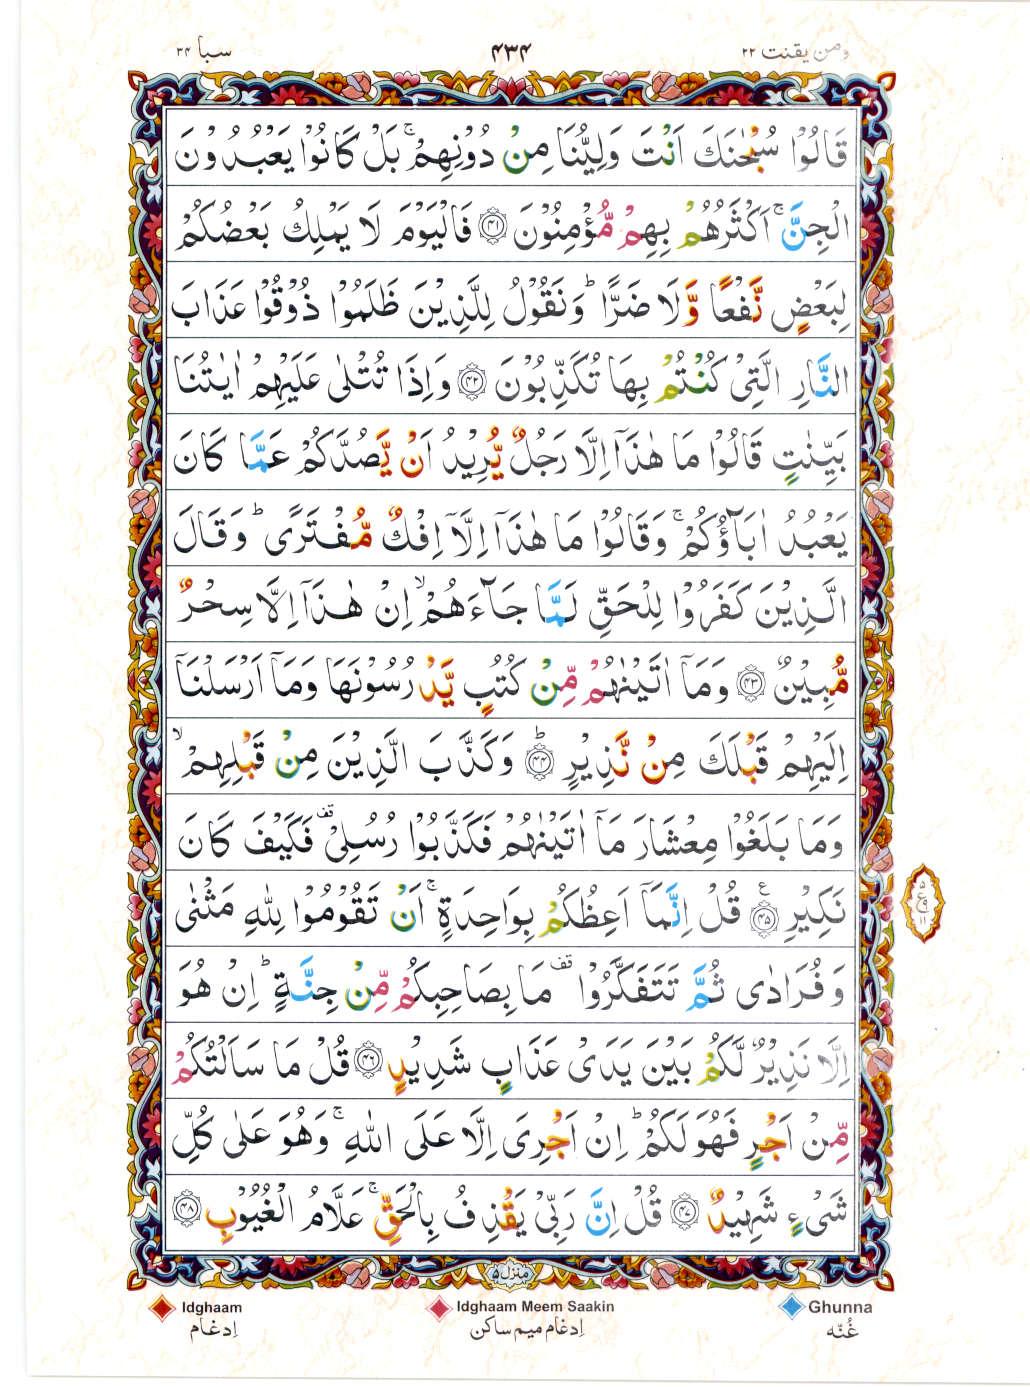 ومن یقنت ۲۲
۴۳۴
سبا ۳۴
قَالُوْا سُبْحٰنَكَ اَنْتَ وَلِیُّنَا مِنْ دُوْنِهِمْ ۚ بَلْ كَانُوْا یَعْبُدُوْنَ
الْجِنَّ ۚ اَكْثَرُهُمْ بِهِمْ مُّؤْمِنُوْنَ ﴿۴۱﴾ فَالْیَوْمَ لَا یَمْلِكُ بَعْضُكُمْ
لِبَعْضٍ نَّفْعًا وَّلَا ضَرًّا ؕ وَنَقُوْلُ لِلَّذِیْنَ ظَلَمُوْا ذُوْقُوْا عَذَابَ
النَّارِ الَّتِیْ كُنْتُمْ بِهَا تُكَذِّبُوْنَ ﴿۴۲﴾ وَاِذَا تُتْلٰی عَلَیْهِمْ اٰیٰتُنَا
بَیِّنٰتٍ قَالُوْا مَا هٰذَاۤ اِلَّا رَجُلٌ یُّرِیْدُ اَنْ یَّصُدَّكُمْ عَمَّا كَانَ
یَعْبُدُ اٰبَآؤُكُمْ ۚ وَقَالُوْا مَا هٰذَاۤ اِلَّاۤ اِفْكٌ مُّفْتَرًی ؕ وَقَالَ
الَّذِیْنَ كَفَرُوْا لِلْحَقِّ لَمَّا جَآءَهُمْ ۙ اِنْ هٰذَاۤ اِلَّا سِحْرٌ
مُّبِیْنٌ ﴿۴۳﴾ وَمَاۤ اٰتَیْنٰهُمْ مِّنْ كُتُبٍ یَّدْرُسُوْنَهَا وَمَاۤ اَرْسَلْنَاۤ
اِلَیْهِمْ قَبْلَكَ مِنْ نَّذِیْرٍ ﴿۴۴﴾ؕ وَكَذَّبَ الَّذِیْنَ مِنْ قَبْلِهِمْ ۙ
وَمَا بَلَغُوْا مِعْشَارَ مَاۤ اٰتَیْنٰهُمْ فَكَذَّبُوْا رُسُلِیْ قف فَكَیْفَ كَانَ
نَكِیْرِ ﴿۴۵﴾ع قُلْ اِنَّمَاۤ اَعِظُكُمْ بِوَاحِدَةٍ ۚ اَنْ تَقُوْمُوْا لِلّٰهِ مَثْنٰی
وَفُرَادٰی ثُمَّ تَتَفَكَّرُوْا قف مَا بِصَاحِبِكُمْ مِّنْ جِنَّةٍ ؕ اِنْ هُوَ
اِلَّا نَذِیْرٌ لَّكُمْ بَیْنَ یَدَیْ عَذَابٍ شَدِیْدٍ ﴿۴۶﴾ قُلْ مَا سَاَلْتُكُمْ
مِّنْ اَجْرٍ فَهُوَ لَكُمْ ؕ اِنْ اَجْرِیَ اِلَّا عَلَی اللّٰهِ ۚ وَهُوَ عَلٰی كُلِّ
شَیْءٍ شَهِیْدٌ ﴿۴۷﴾ قُلْ اِنَّ رَبِّیْ یَقْذِفُ بِالْحَقِّ ۚ عَلَّامُ الْغُیُوْبِ ﴿۴۸﴾
۵
ع
۱۱
منزل ۵
Idghaam
Idghaam Meem Saakin
Ghunna
اِدغَام
اِدغَام میم ساکن
غُنّه